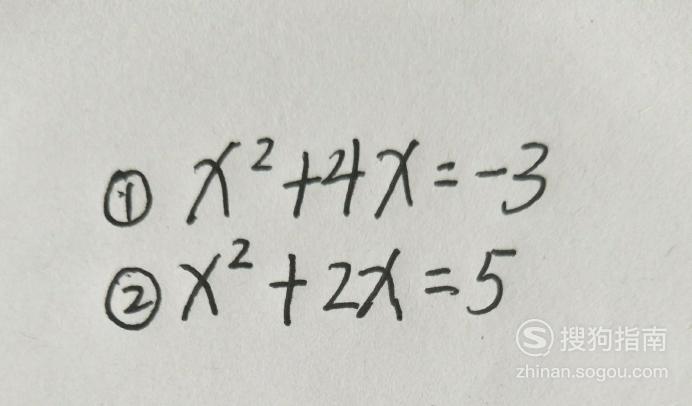 ① x²+4x=-3
② x²+2x=5
S 搜狗指南
zhinan.sogou.com